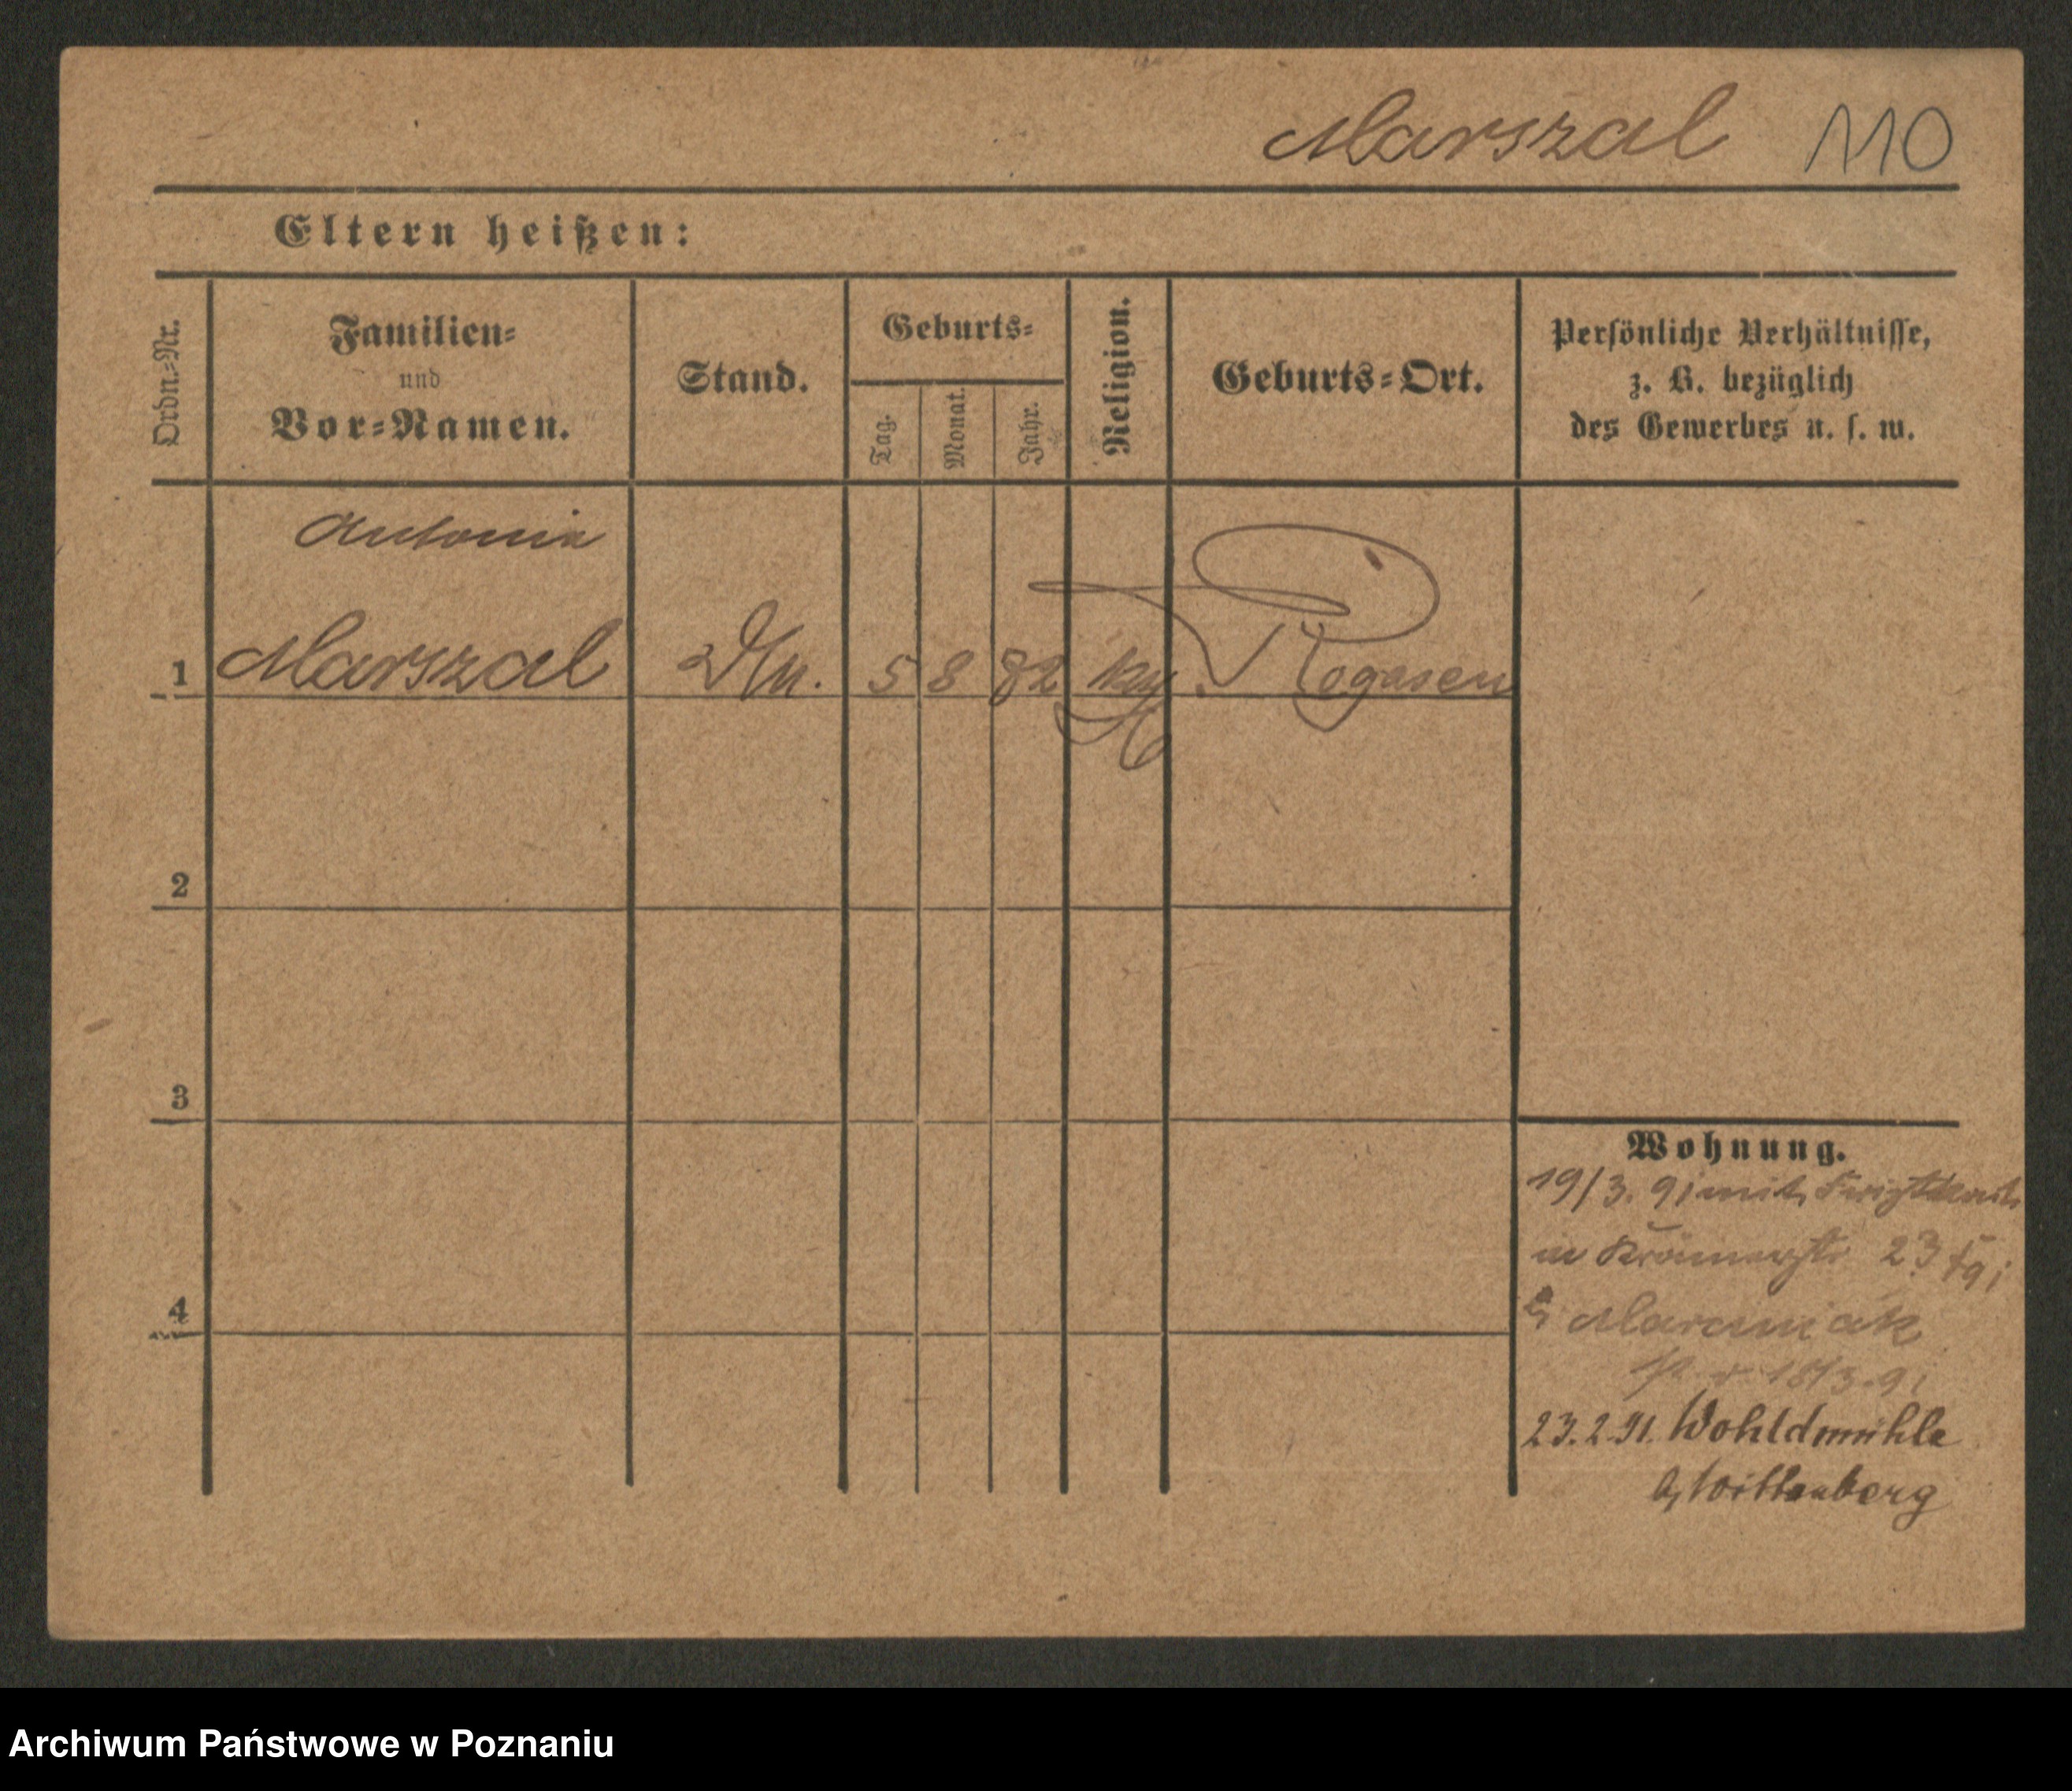 Marszal 110
Eltern heißen:
Ordn.-Nr.
Familien-
und
Vor-Namen.
Stand.
Geburts-
Tag.
Monat.
Jahr.
Religion.
Geburts-Ort.
Persönliche Verhältnisse,
z. B. bezüglich
des Gewerbes u. s. w.
Antonia
1 Marszal 5 8 82 Rogasen
2
3
4
Wohnung.
19/3. 91
Krämerstr 23
Marciniak
18/3. 91
23.2.91. Wohldmühle
b/Wittenberg
Archiwum Państwowe w Poznaniu